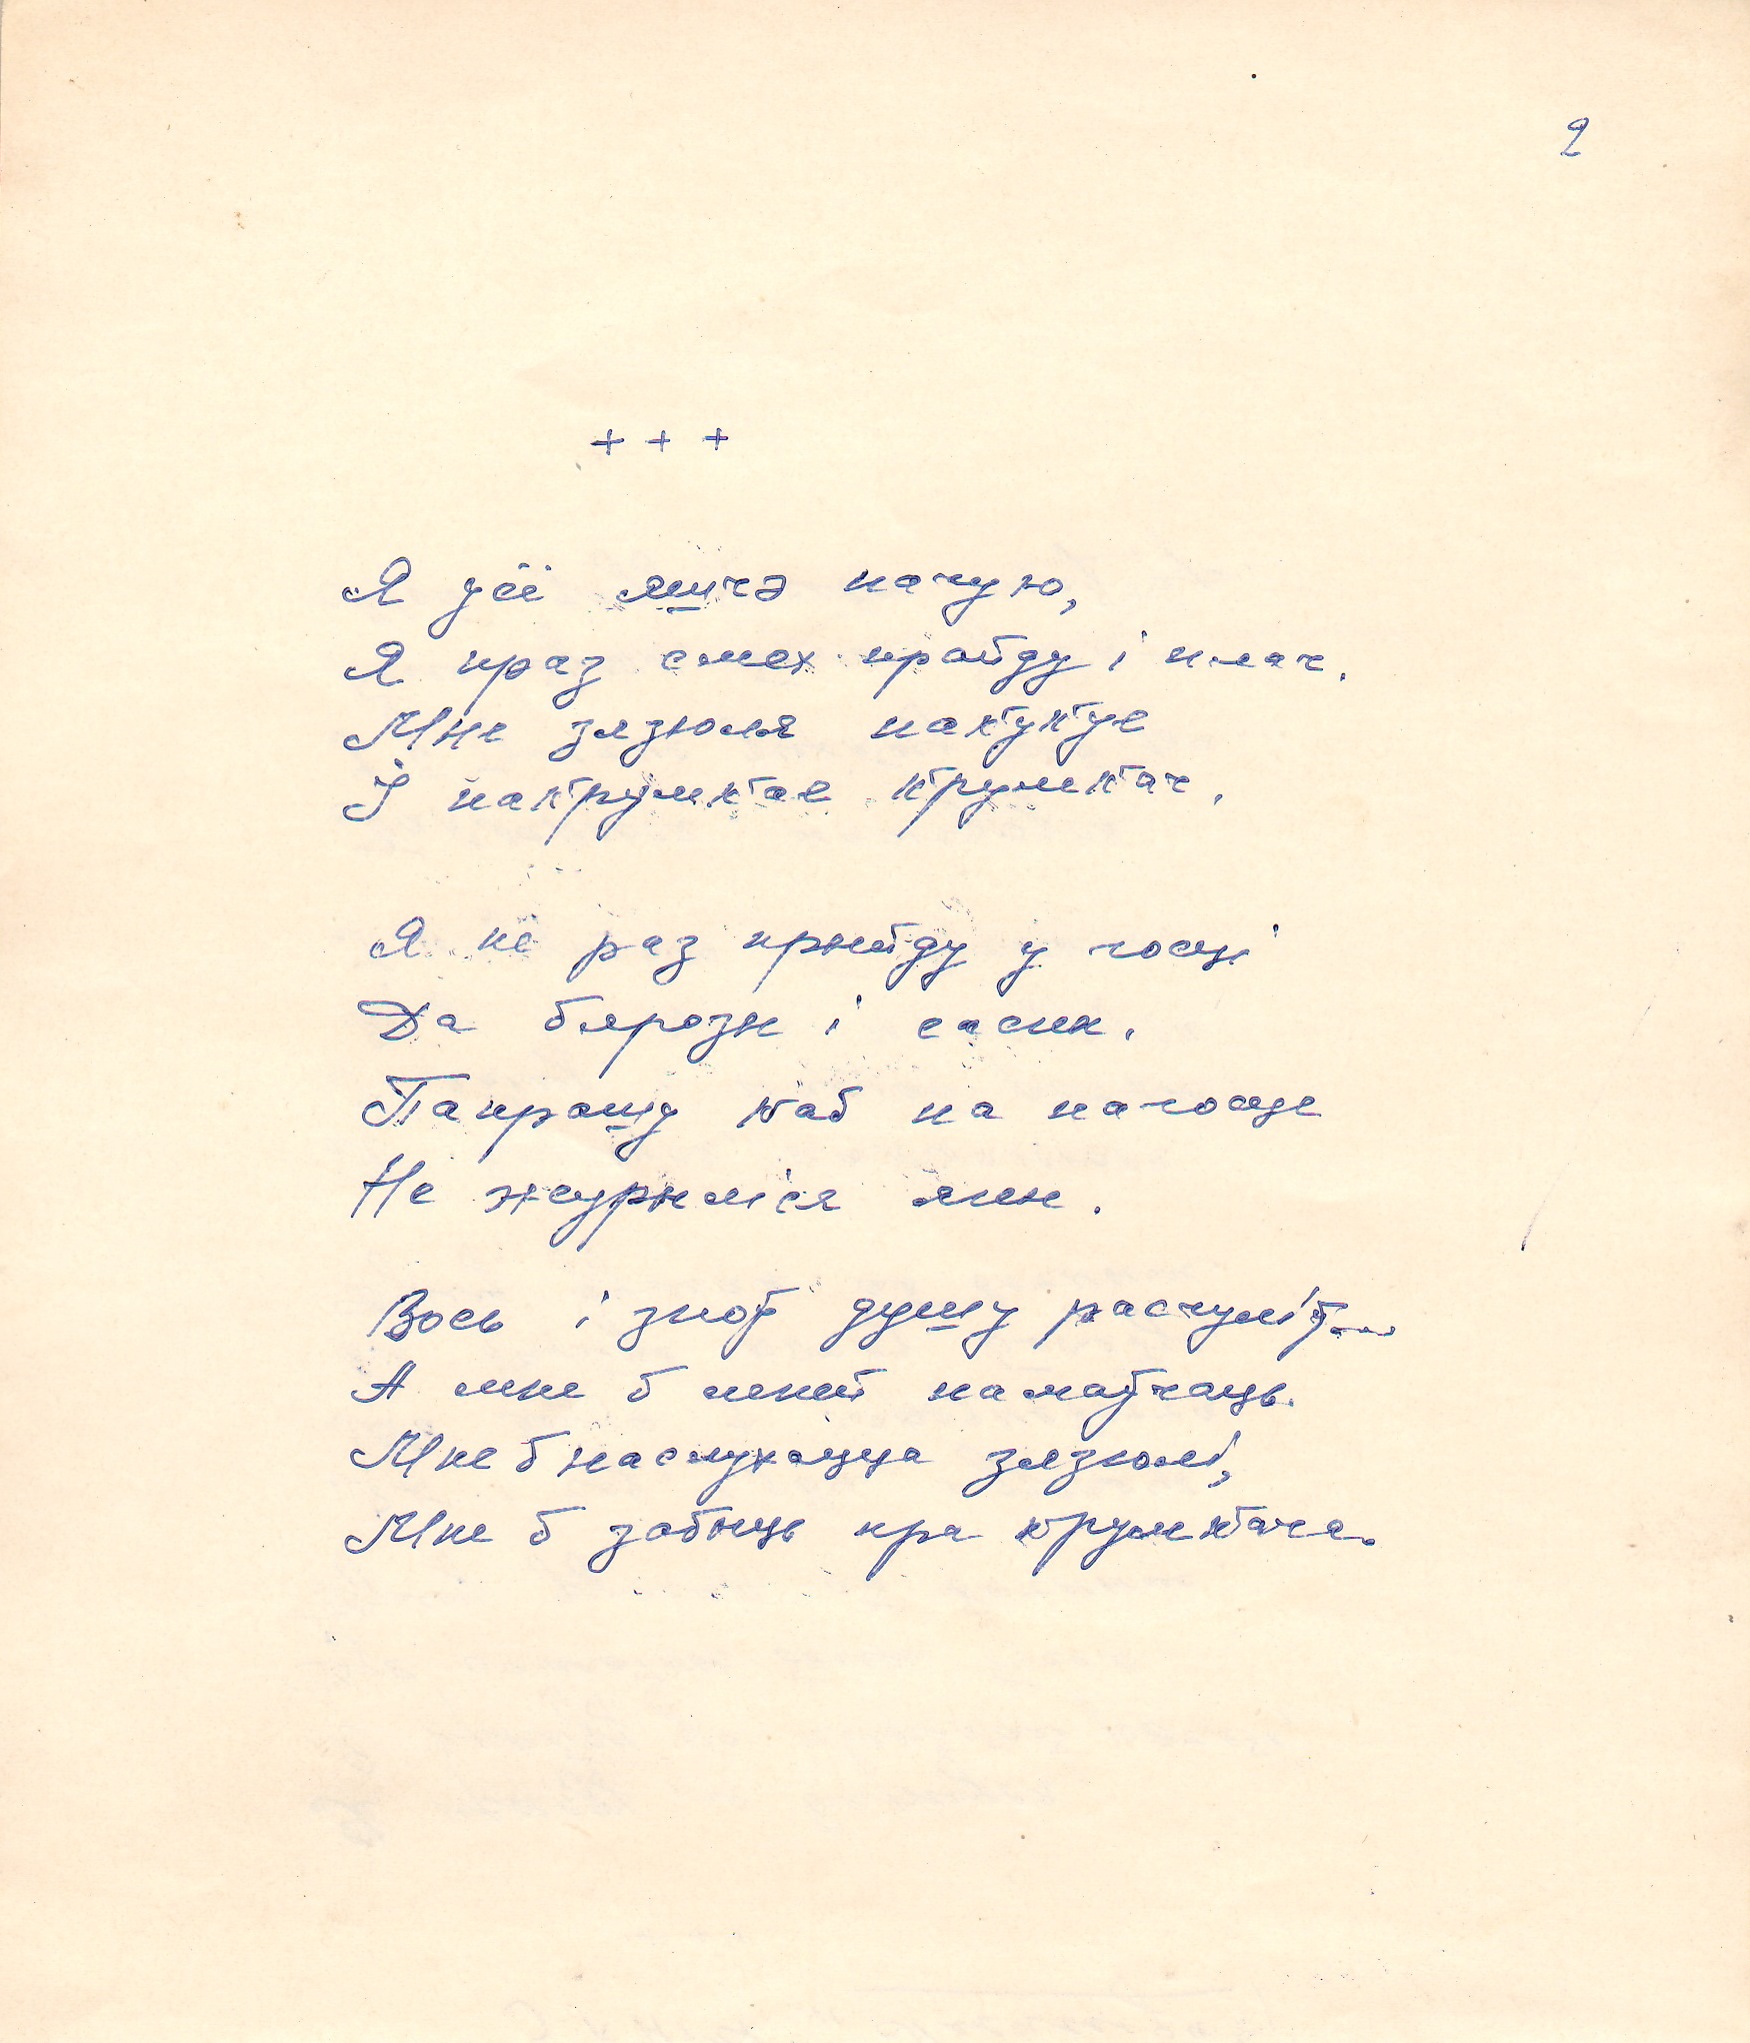 2
+ + +
Я усё яшчэ пачую,
Я праз смех прайду і плач.
Мне зязюля накукуе
І накрумкае крумкач.
Я не раз прыйду у госці
Да бярозы і сасны.
Папрашу каб на пагосце
Не журыліся яны.
Вось і зноў душу расчуліў...
А мне б лепей памаўчаць.
Мне б наслухацца зязюлі,
Мне б забыць пра крумкача.